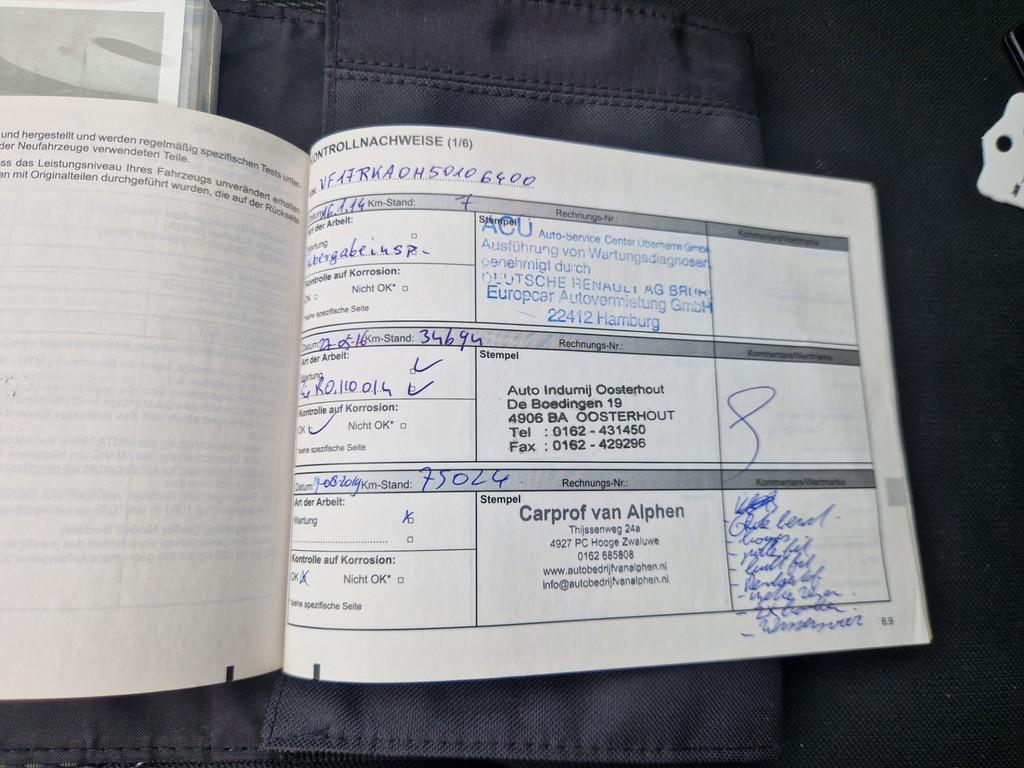 und hergestellt und werden regelmäßig spezifischen Tests unter-
der Neufahrzeuge verwendeten Teile.
ss das Leistungsniveau Ihres Fahrzeugs unverändert erhalten
en mit Originalteilen durchgeführt wurden, die auf der Rückseite
KONTROLLNACHWEISE (1/6)
VF17RKA0H50106400
Datum: 16.1.14 Km-Stand: 7 Rechnungs-Nr.: Kommentare/Wertmarke
Art der Arbeit:
Wartung
Übergabeinsp.
Kontrolle auf Korrosion:
OK Nicht OK*
*siehe spezifische Seite
Stempel
ACU Auto-Service Center Übernerm GmbH
Ausführung von Wartungsdiagnosen
genehmigt durch
DEUTSCHE RENAULT AG BRÜHL
Europcar Autovermietung GmbH
22412 Hamburg
Datum: 27-05-16 Km-Stand: 34694 Rechnungs-Nr.: Kommentare/Wertmarke
Art der Arbeit:
Wartung
Kontrolle auf Korrosion:
OK Nicht OK*
*siehe spezifische Seite
Stempel
Auto Indumij Oosterhout
De Boedingen 19
4906 BA OOSTERHOUT
Tel : 0162 - 431450
Fax : 0162 - 429296
Datum: -08-2019 Km-Stand: 75024 Rechnungs-Nr.: Kommentare/Wertmarke
Art der Arbeit:
Wartung
Kontrolle auf Korrosion:
OK Nicht OK*
*siehe spezifische Seite
Stempel
Carprof van Alphen
Thijssenweg 24a
4927 PC Hooge Zwaluwe
0162 685808
www.autobedrijfvanalphen.nl
info@autobedrijfvanalphen.nl
6.9